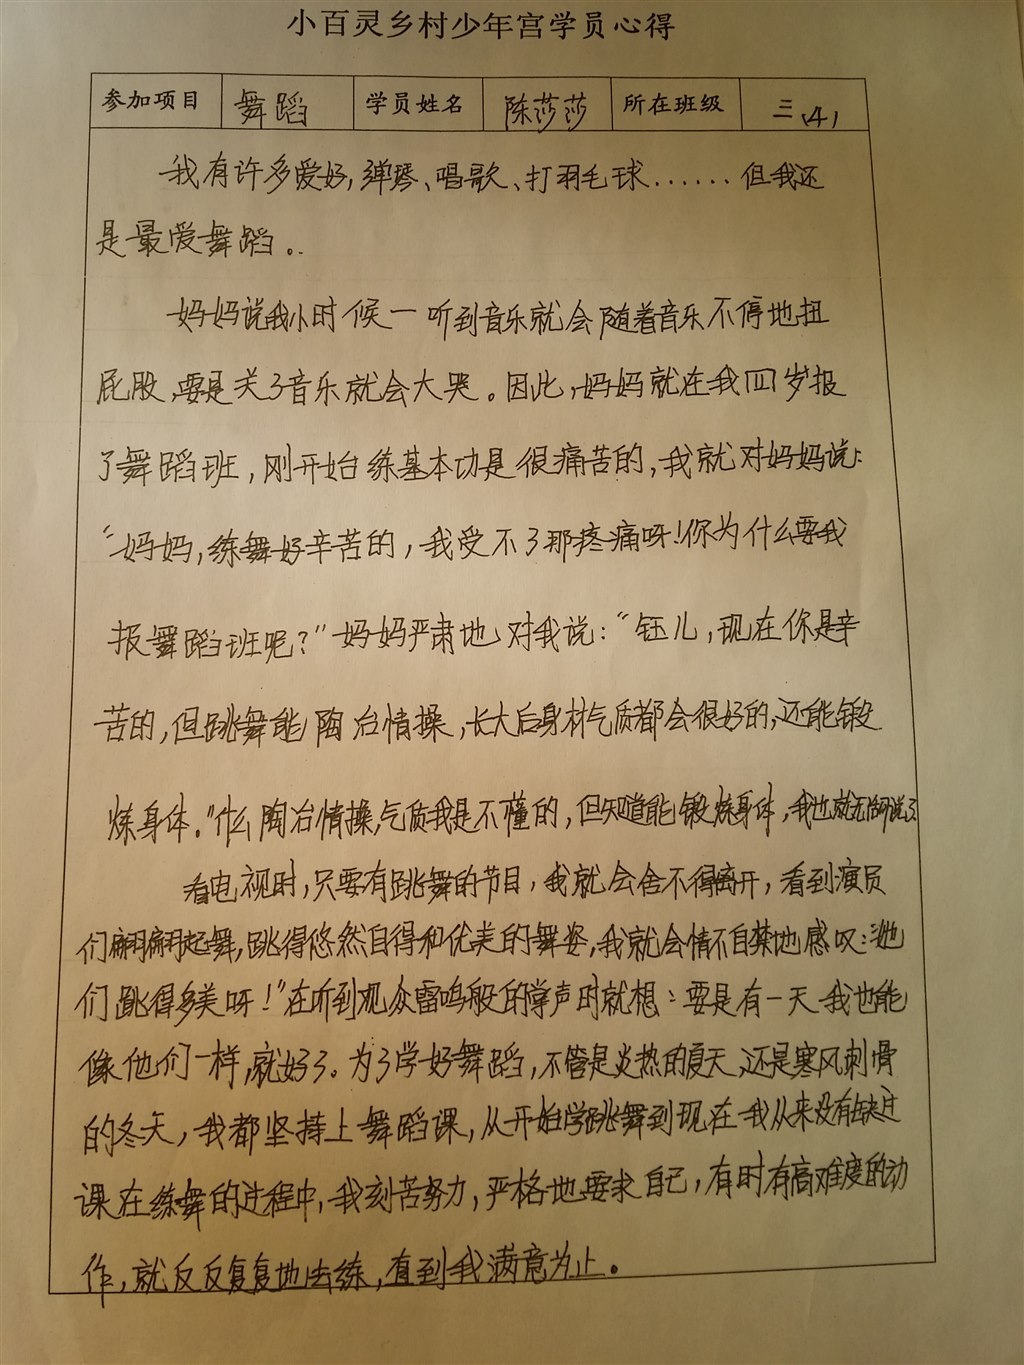 小百灵乡村少年宫学员心得
参加项目 舞蹈 学员姓名 陈莎莎 所在班级 三(4)
我有许多爱好,弹琴、唱歌、打羽毛球......但我还
是最爱舞蹈。
妈妈说我小时候一听到音乐就会随着音乐不停地扭
屁股,要是关了音乐就会大哭。因此,妈妈就在我四岁报
了舞蹈班,刚开始练基本功是很痛苦的,我就对妈妈说:
“妈妈,练舞好辛苦的,我受不了那疼痛呀!你为什么要我
报舞蹈班呢?”妈妈严肃地对我说:“钰儿,现在你是辛
苦的,但跳舞能陶冶情操,长大后身材气质都会很好的,还能锻
炼身体。”什么陶冶情操,气质我是不懂的,但知道能锻炼身体,我也就无话可说了
看电视时,只要有跳舞的节目,我就会舍不得离开,看到演员
们翩翩起舞,跳得悠然自得和优美的舞姿,我就会情不自禁地感叹:“她
们跳得多美呀!”在听到观众雷鸣般的掌声时就想:要是有一天我也能
像他们一样,就好了。为了学好舞蹈,不管是炎热的夏天,还是寒风刺骨
的冬天,我都坚持上舞蹈课,从开始学跳舞到现在我从来没有缺过
课在练舞的过程中,我刻苦努力,严格地要求自己,有时有高难度的动
作,就反反复复地去练,直到我满意为止。